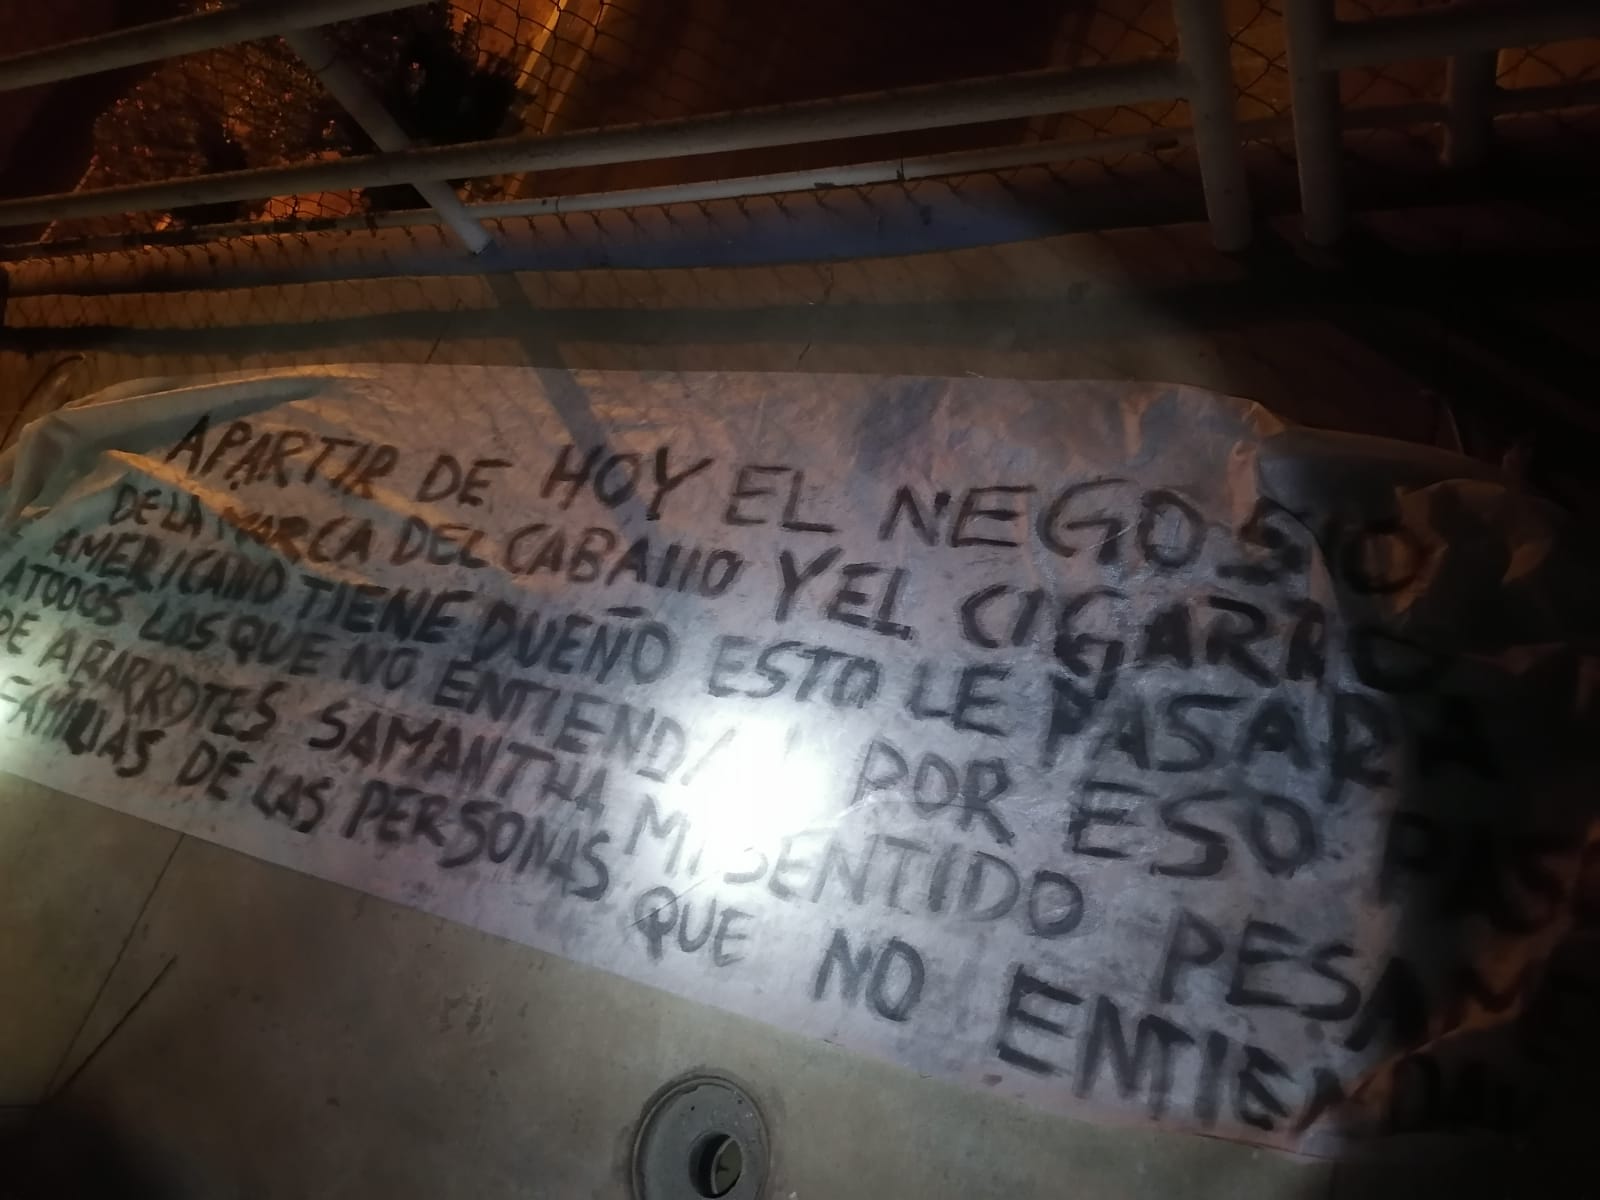 APARTIR DE HOY EL NEGOSIO
DE LA MARCA DEL CABALLO Y EL CIGARRO
AMERICANO TIENE DUEÑO ESTO LE PASARA
ATODOS LOS QUE NO ENTIENDAN POR ESO
DE ABARROTES SAMANTHA MI SENTIDO PESA
FAMILIAS DE LAS PERSONAS QUE NO ENTIEN